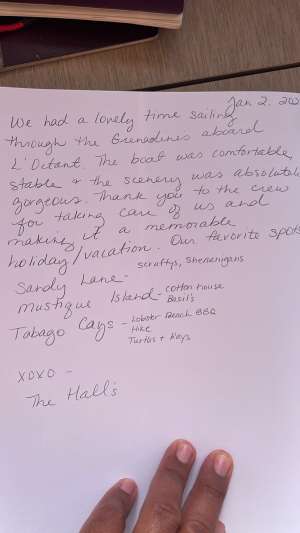 Jan 2. 202
We had a lovely time sailing
through the Grenadines aboard
L'Octant. The boat was comfortable,
stable + the scenery was absolutely
gorgeous. Thank you to the crew
for taking care of us and
making it a memorable
holiday/vacation. Our favorite spots
Sandy Lane - scruffys, Shenanigans
Mustique Island - Cotton House
Basil's
Tobago Cays - Lobster Beach BBQ
Hike
Turtles + Rays
XOXO -
The Hall's